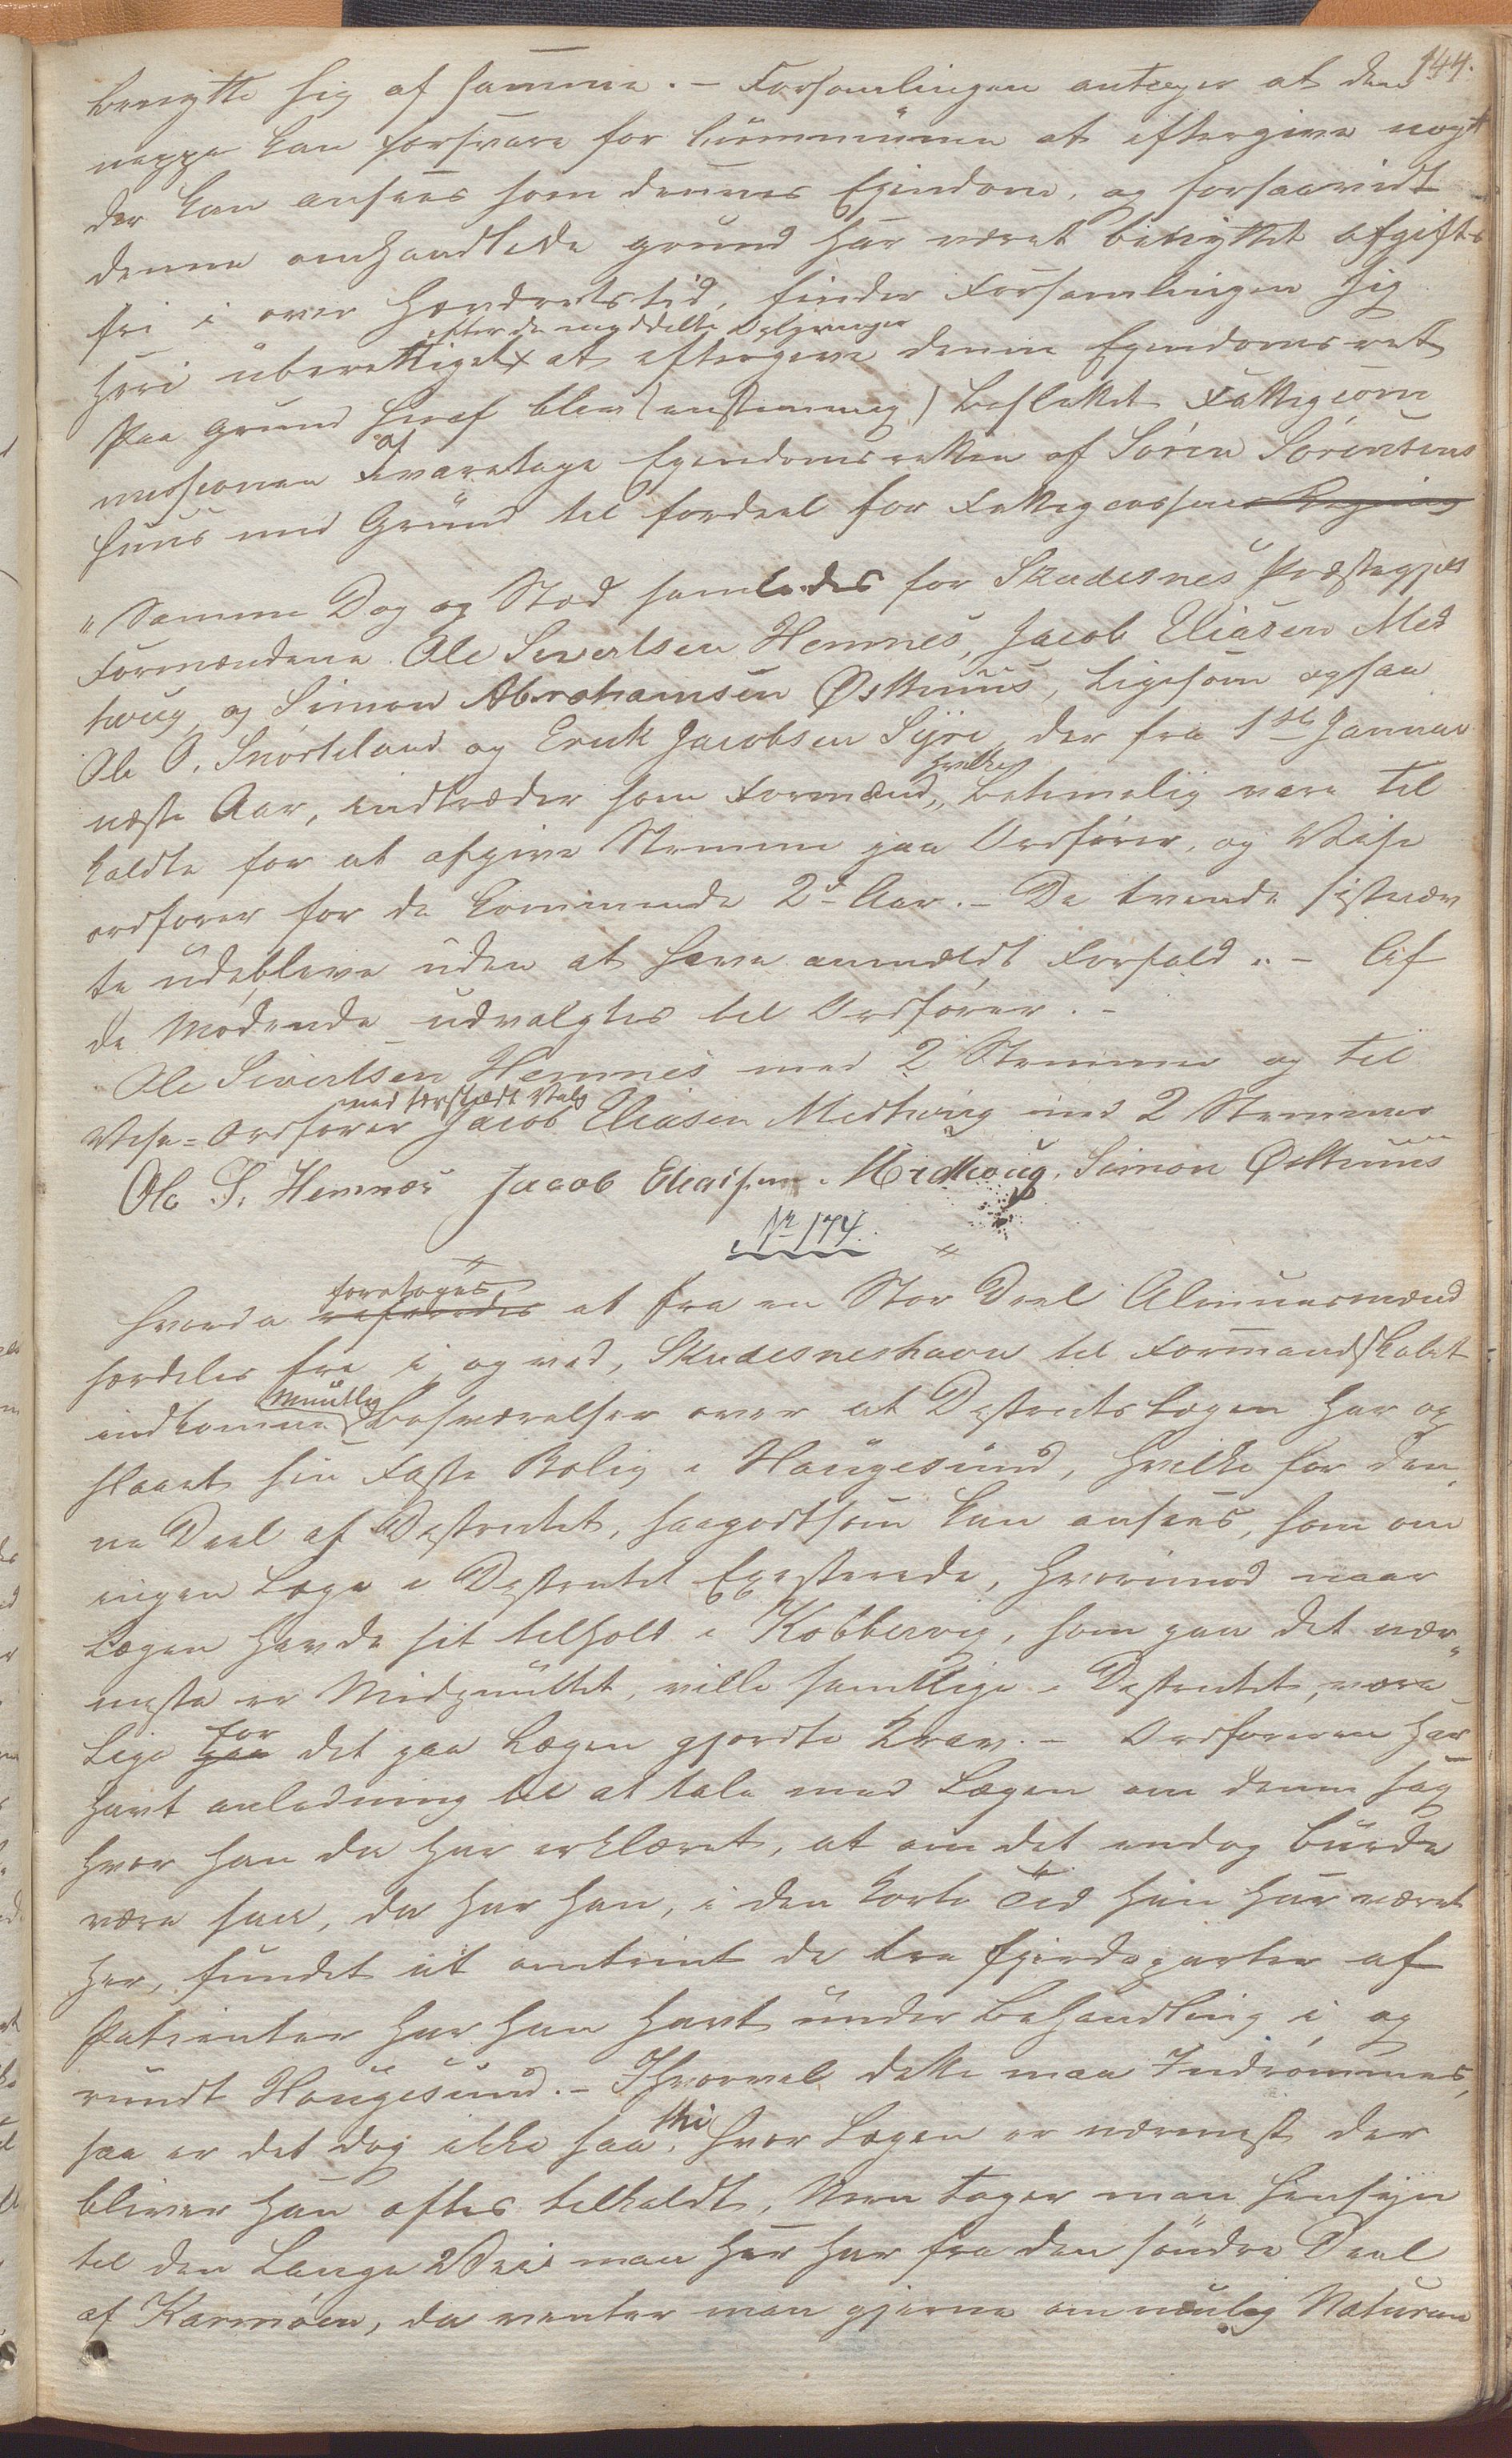 144.
benytte sig af samme. – Forsamlingen antager at den
neppe kan forsvare for Kummunen at eftergive noget
der kan ansees som dennes Ejendom, og forsaavidt
denne omhandlede grund har været benyttet afgifts
fri i over Hundredetstid, finder Forsamlingen sig
efter de meddelte Oplysninger
heri uberettiget at eftergive denne Ejendomsret
Paa grund heraf blev (enstemmig) besluttet Fattigcom
missionen at varetage Ejendomsretten af Søren Sørensens
huus med Grund til fordeel for Fattigcassen
"Samme Dag og Stod samledes for Skudesnes Præstegjeld
Formændene Ole Sivertsen Hemnes, Jacob Eliasen Med
houg, og Simon Abrahamsen Østhuus, ligesom ogsaa
Ole O. Snørteland og Erick Jacobsen Syre, der fra 1ste Januar
hvilke
næste Aar, indtræder som Formænd, betimelig vare til
kaldte for at afgive Stemme paa Ordfører, og Vise
ordfører for de kommende 2de Aar. – De tvende sistnæv
te udebleve uden at have anmeldt Forfald. – Af
de Mødende udvalgtes til Ordfører. –
Ole Sivertsen Hemnes med 2 Stemmer og til
med Valg
Vise-Ordfører Jacob Eliasen Medhoug med 2 Stemmer
Ole S. Hemnæs Jacob Eliassen Midhoug, Simon Østhuus
Nr 174.
foretoges
Hvorda at fra en Stor Deel Almuesmænd
særdeles fra i og ved, Skudesneshavn til Formandskabet
Mundtlig
indkomne Besværelser over at Destrictslægen har op
slaaet sin Faste Bolig i Haugesund, hvilke for den,
ne Deel af Destrictet, saagodtsom kan ansees, som om
ingen Læge i Destrictet Exesterede, hvorimod naar
Lægen havde sit tilhold i Kobbervig, som paa det nær"
meste er Midpunktet, ville samtlige i Destrictet, være
for
lige paa det paa Lægen gjordte Krav. – Ordføreren har
havt anledning til at tale med Lægen om denne sag
hvor han da har erklæret, at om det endog burde
være saa, da har han, i den korte Tid han har været
her, fundet at omtrent de tre fjerdeparter af
Patienter har han havt under Behandling i og
rundt Haugesund. – Ihvorvel dette maa Indrømmes,
thi
saa er det dog ikke saa, hvor Lægen er nærmest der
bliver han oftes tilkaldt, Men tager man hensyn
til den Lange Vei man her har fra den søndre Deel
af Karmøen, da venter man gjerne om muelig Naturen